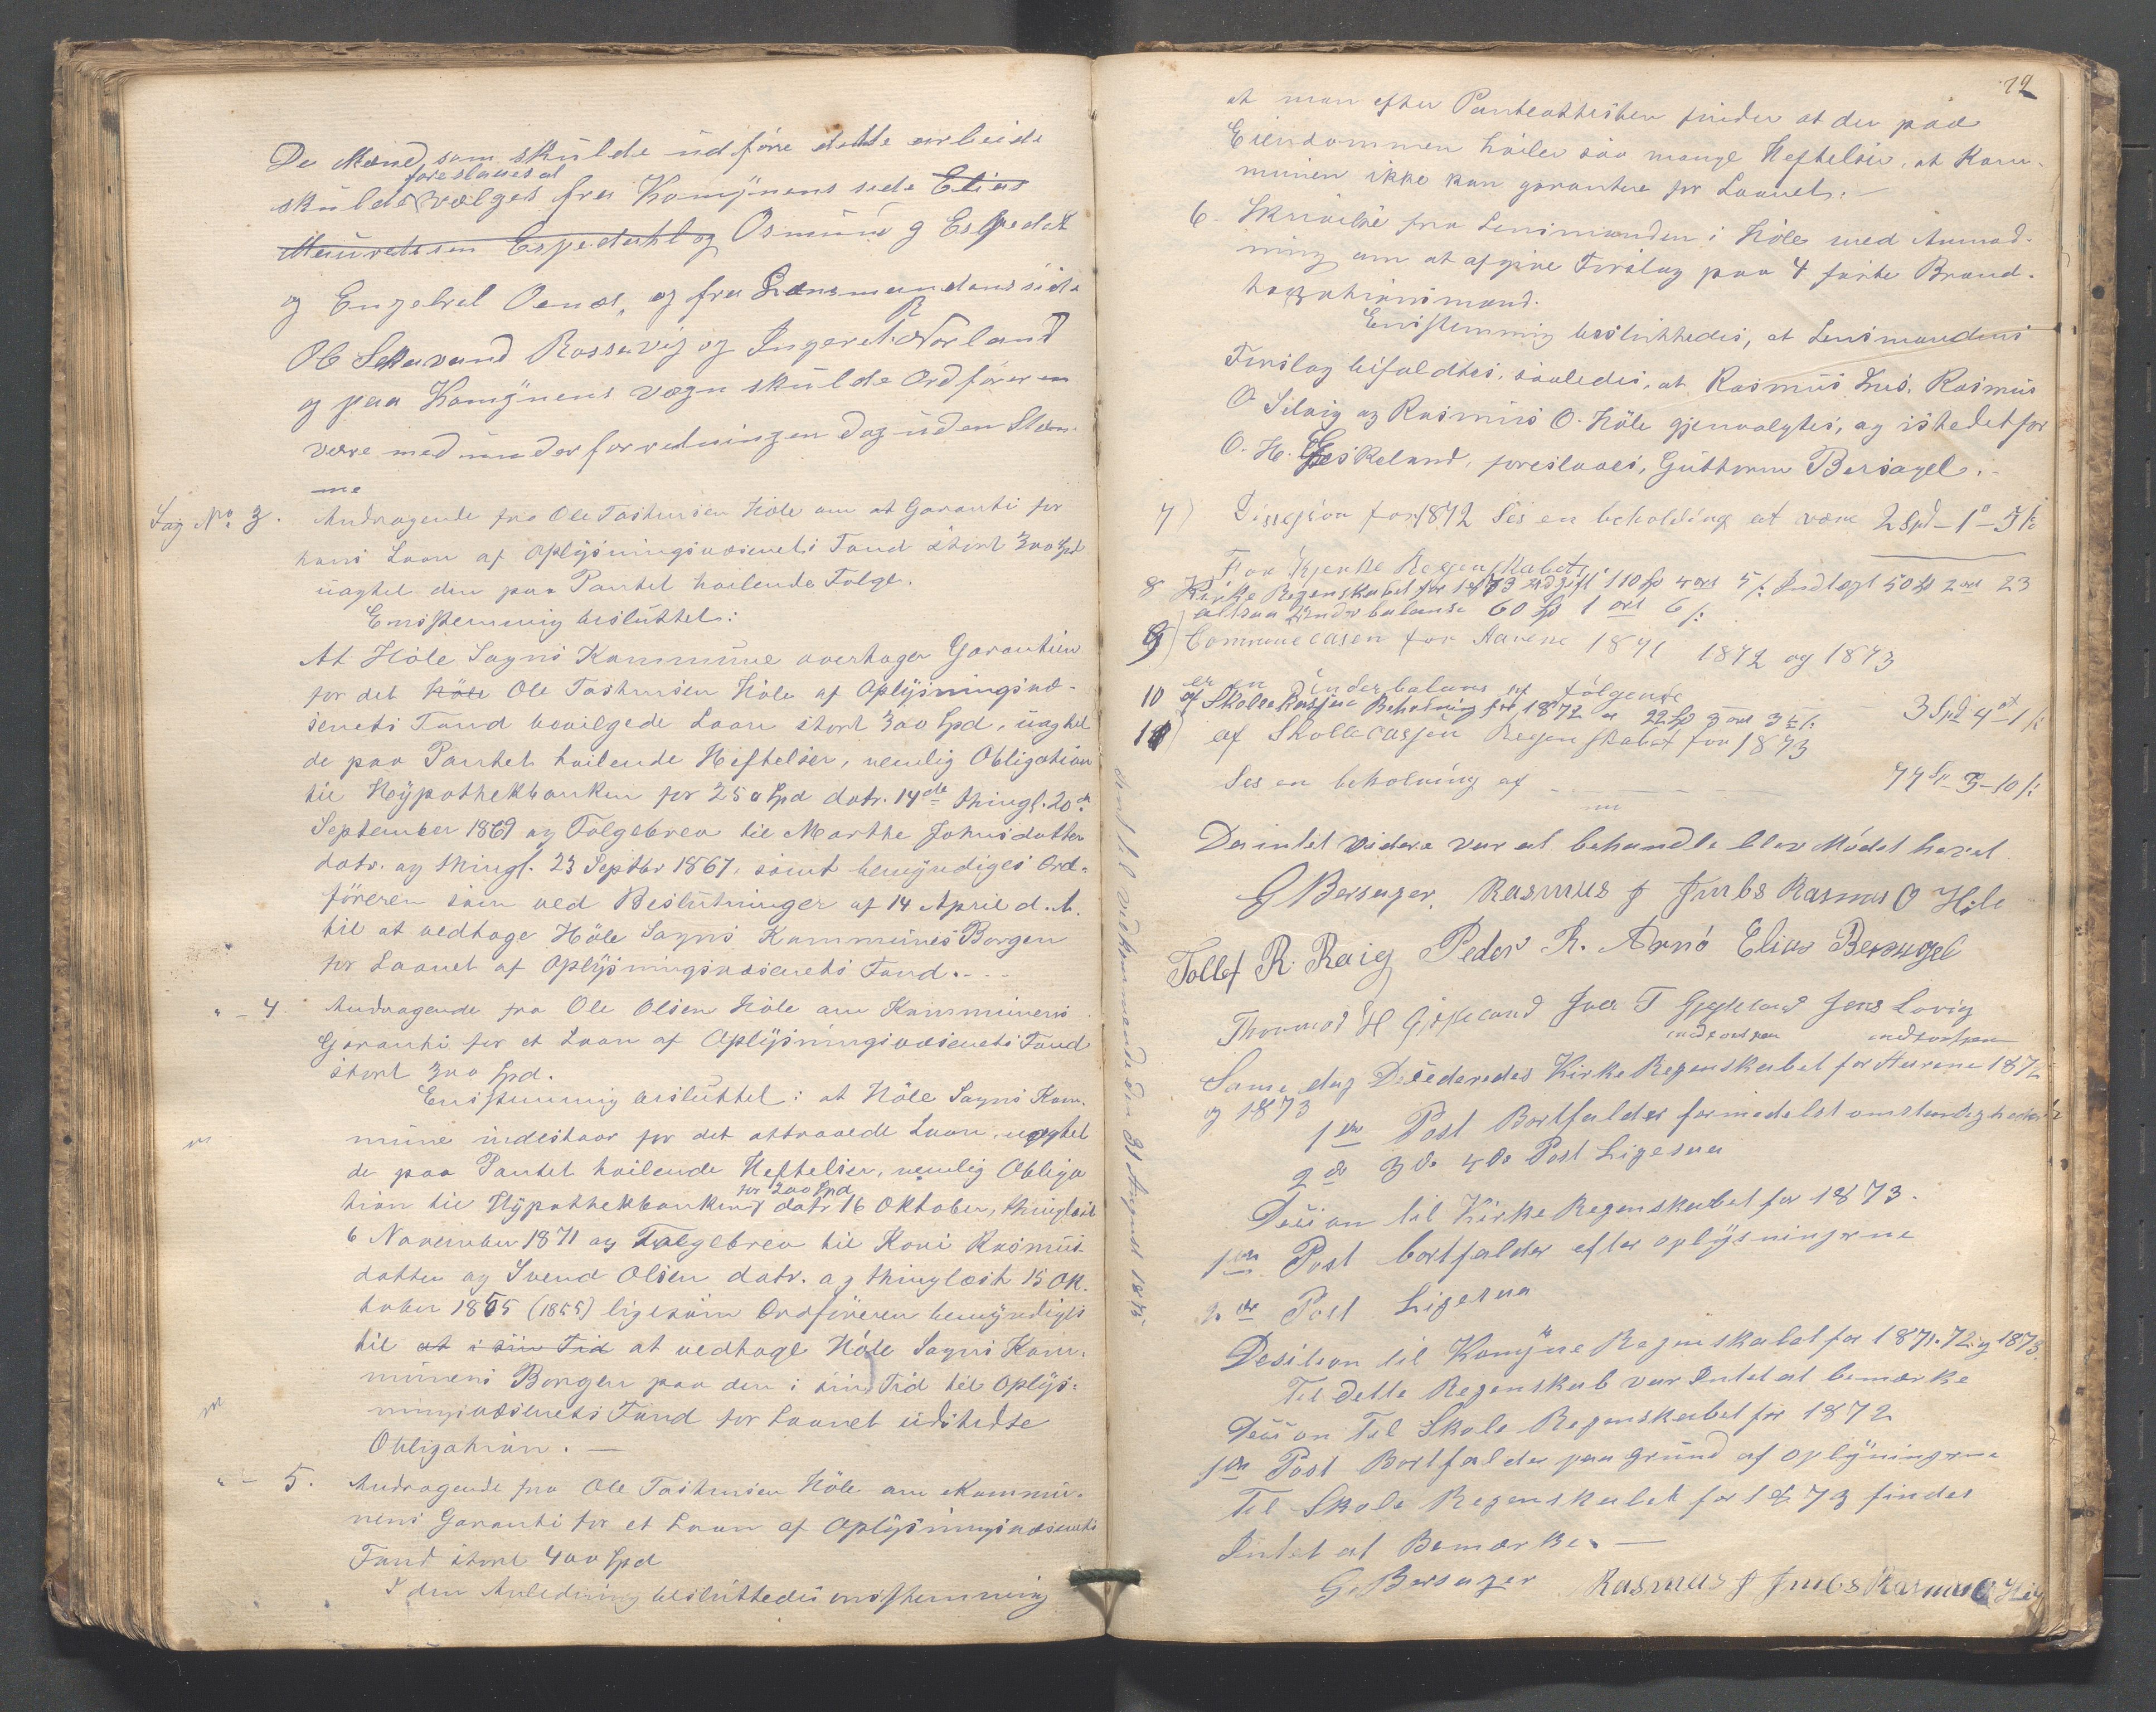 De Mænd som skulde udføre dette arbeide
foreslaaes at
skulde vælges fra Komynens side Elias
Mauretssen Espedahl og Osmun g Espedal
og Engebret Oenæs, og fra Lensmandens side
Ob Selvand Rossavig og Ingeret R Norland
og paa Komynens vægn skulde Ordføreren
være med under forretningen dog uden Stem-
me
Sag No. 3. Andragende fra Ole Tostensen Høle om at Garanti for
hans Laan af Oplysningsvæsenets Fond stort 300 Spd
uagtet den paa Pantet hvilende Folge.
Enstemmig besluttet:
At Høle Sogns Kommune overtager Garantien
for det Høle Ole Tostensen Høle af Oplysningsvæ-
senets Fond bevilgede Laan stort 300 Spd, uagtet
de paa Pantet hvilende Heftelser, nemlig Obligation
til Hypothekbanken for 250 Spd datr. 14de thingl. 20de
September 1869 og Folgebrev til Marthe Johnsdatter
datr. og thingl. 23 Septbr 1867, samt bemyndiges Ord-
føreren som ved Beslutninger af 14 April d. A.
til at vedtage Høle Sogns Kommunes Borgen
for Laanet af Oplysningsvæsenets Fond.
" - 4 Andragende fra Ole Olsen Høle om Kommunens
Garanti for et Laan af Oplysningsvæsenets Fond
stort 300 Spd.
Enstemmig besluttet: at Høle Sogns Kom-
mune indestaar for det attraaede Laan, uagtet
de paa Pantet hvilende Heftelser, nemlig Obliga
for 200 Spd
tion til Hypothekbanken datr 16 Oktober, thinglæst
6 November 1871 og Folgebrev til Kari Rasmus-
datter og Svend Olsen datr. og thinglæst 15 Ok-
tober 1855 (1855) ligesom Ordføreren bemyndiges
til at i sin Tid at vedtage Høle Sogns Kom-
munens Borgen paa den i sin Tid til Oplys-
ningsvæsenets Fond for Laanet udstedte
Obligation. —
" - 5. Andragende fra Ole Tostensen Høle om Kommu-
nens Garanti for et Laan af Oplysningsvæsenets
Fond stort 400 Spd
I den Anledning besluttedes enstemmig
72
at man efter Panteattesten finder at der paa
Eiendommen hviler saa mange Heftelser, at Kom-
munen ikke kan garantere for Laanet. —
6 Skrivelse fra Lensmanden i Høle med Anmod-
ning om at afgive Forslag paa 4 faste Brand-
taxationsmænd.
Enstemmig besluttedes, at Lensmandens
Forslag bifaldtes, saaledes, at Rasmus Ims, Rasmus
O Selvig og Rasmus O. Høle gjenvalgtes, og istedetfor
O. H. Gjeskeland, foreslaaes, Guttorm Bersagel. -
7) for 1872 Ses en beholding at være 2 Spd - 1 o - 5 /s
For Kjerke Regenskabet
8 Kirke Regenskabet for 1873 Udgift 110 Sp 4 ort 5 /: Indtægt 50 Sp 2 ort 23
altsaa Underbalanse 60 Sp 1 ort 6 /:
9) Communecasen for Aarene 1871 1872 og 1873
er en Underbalans af følgende 3 Spd 4 ort 1 /:
10 af Skolekasjen Beholning for 1872 er 22 Sp 3 ort 3 /:
11) af Skollecasjen Regenskabet for 1873
Ses en beholning af 77 Sp - 3 - 10 /:
Da intet videre var at behandle blev Mødet hævet
G Bersagel, Rasmus J Imbs Rasmus O Høle
Tollef R. Raig Peder R. Arnø Elias Bersagel
Thormod H Gjeskeland Iver T Gjeskeland Jens Lovig
Same dag Desederedes Kirke Regenskabet for Aarene 1872
og 1873
1ste Post Bortfalder formedelst omstendigheder
2de 3de 4de Post Ligesaa
Desion til Kirke Regenskabet for 1873.
1ste Post bortfalder efter oplysningerne
2de Post Ligesaa
Desision til Komyne Regenskabet for 1871. 72 og 1873.
Til dette Regenskab var Intet at bemærke
Desion Til Skole Regenskabet for 1872
1ste Post Bortfalder paa grund af oplysningerne
Til Skole Regenskabet for 1873 findes
Intet at Bemærke. —
G. Bersagel Rasmus J Imbs Rasmus O Høle
Sent til vedkommende den 31 August 1875